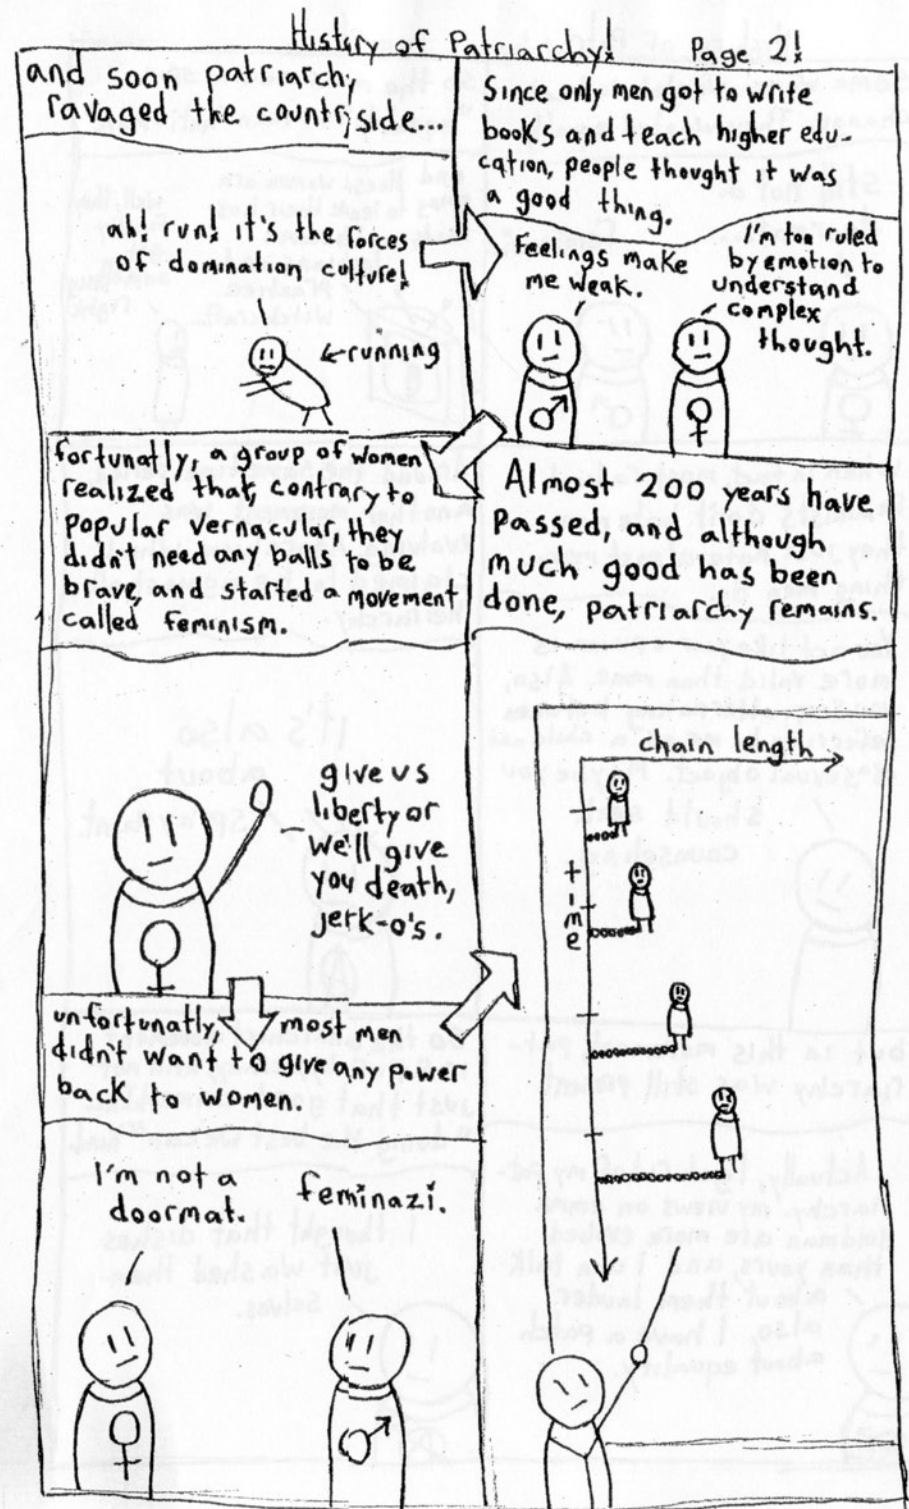 History of Patriarchy! Page 2!
and soon patriarchy
ravaged the country side...
ah! run! it's the forces
of domination culture!
←running
Since only men got to write
books and teach higher edu-
cation, people thought it was
a good thing.
Feelings make
me weak.
I'm too ruled
by emotion to
understand
complex
thought.
fortunatly, a group of women
realized that, contrary to
popular vernacular, they
didn't need any balls to be
brave, and started a movement
called feminism.
give us
liberty or
we'll give
you death,
jerk-o's.
unfortunatly, most men
didn't want to give any power
back to women.
I'm not a
doormat.
feminazi.
Almost 200 years have
passed, and although
much good has been
done, patriarchy remains.
chain length
time